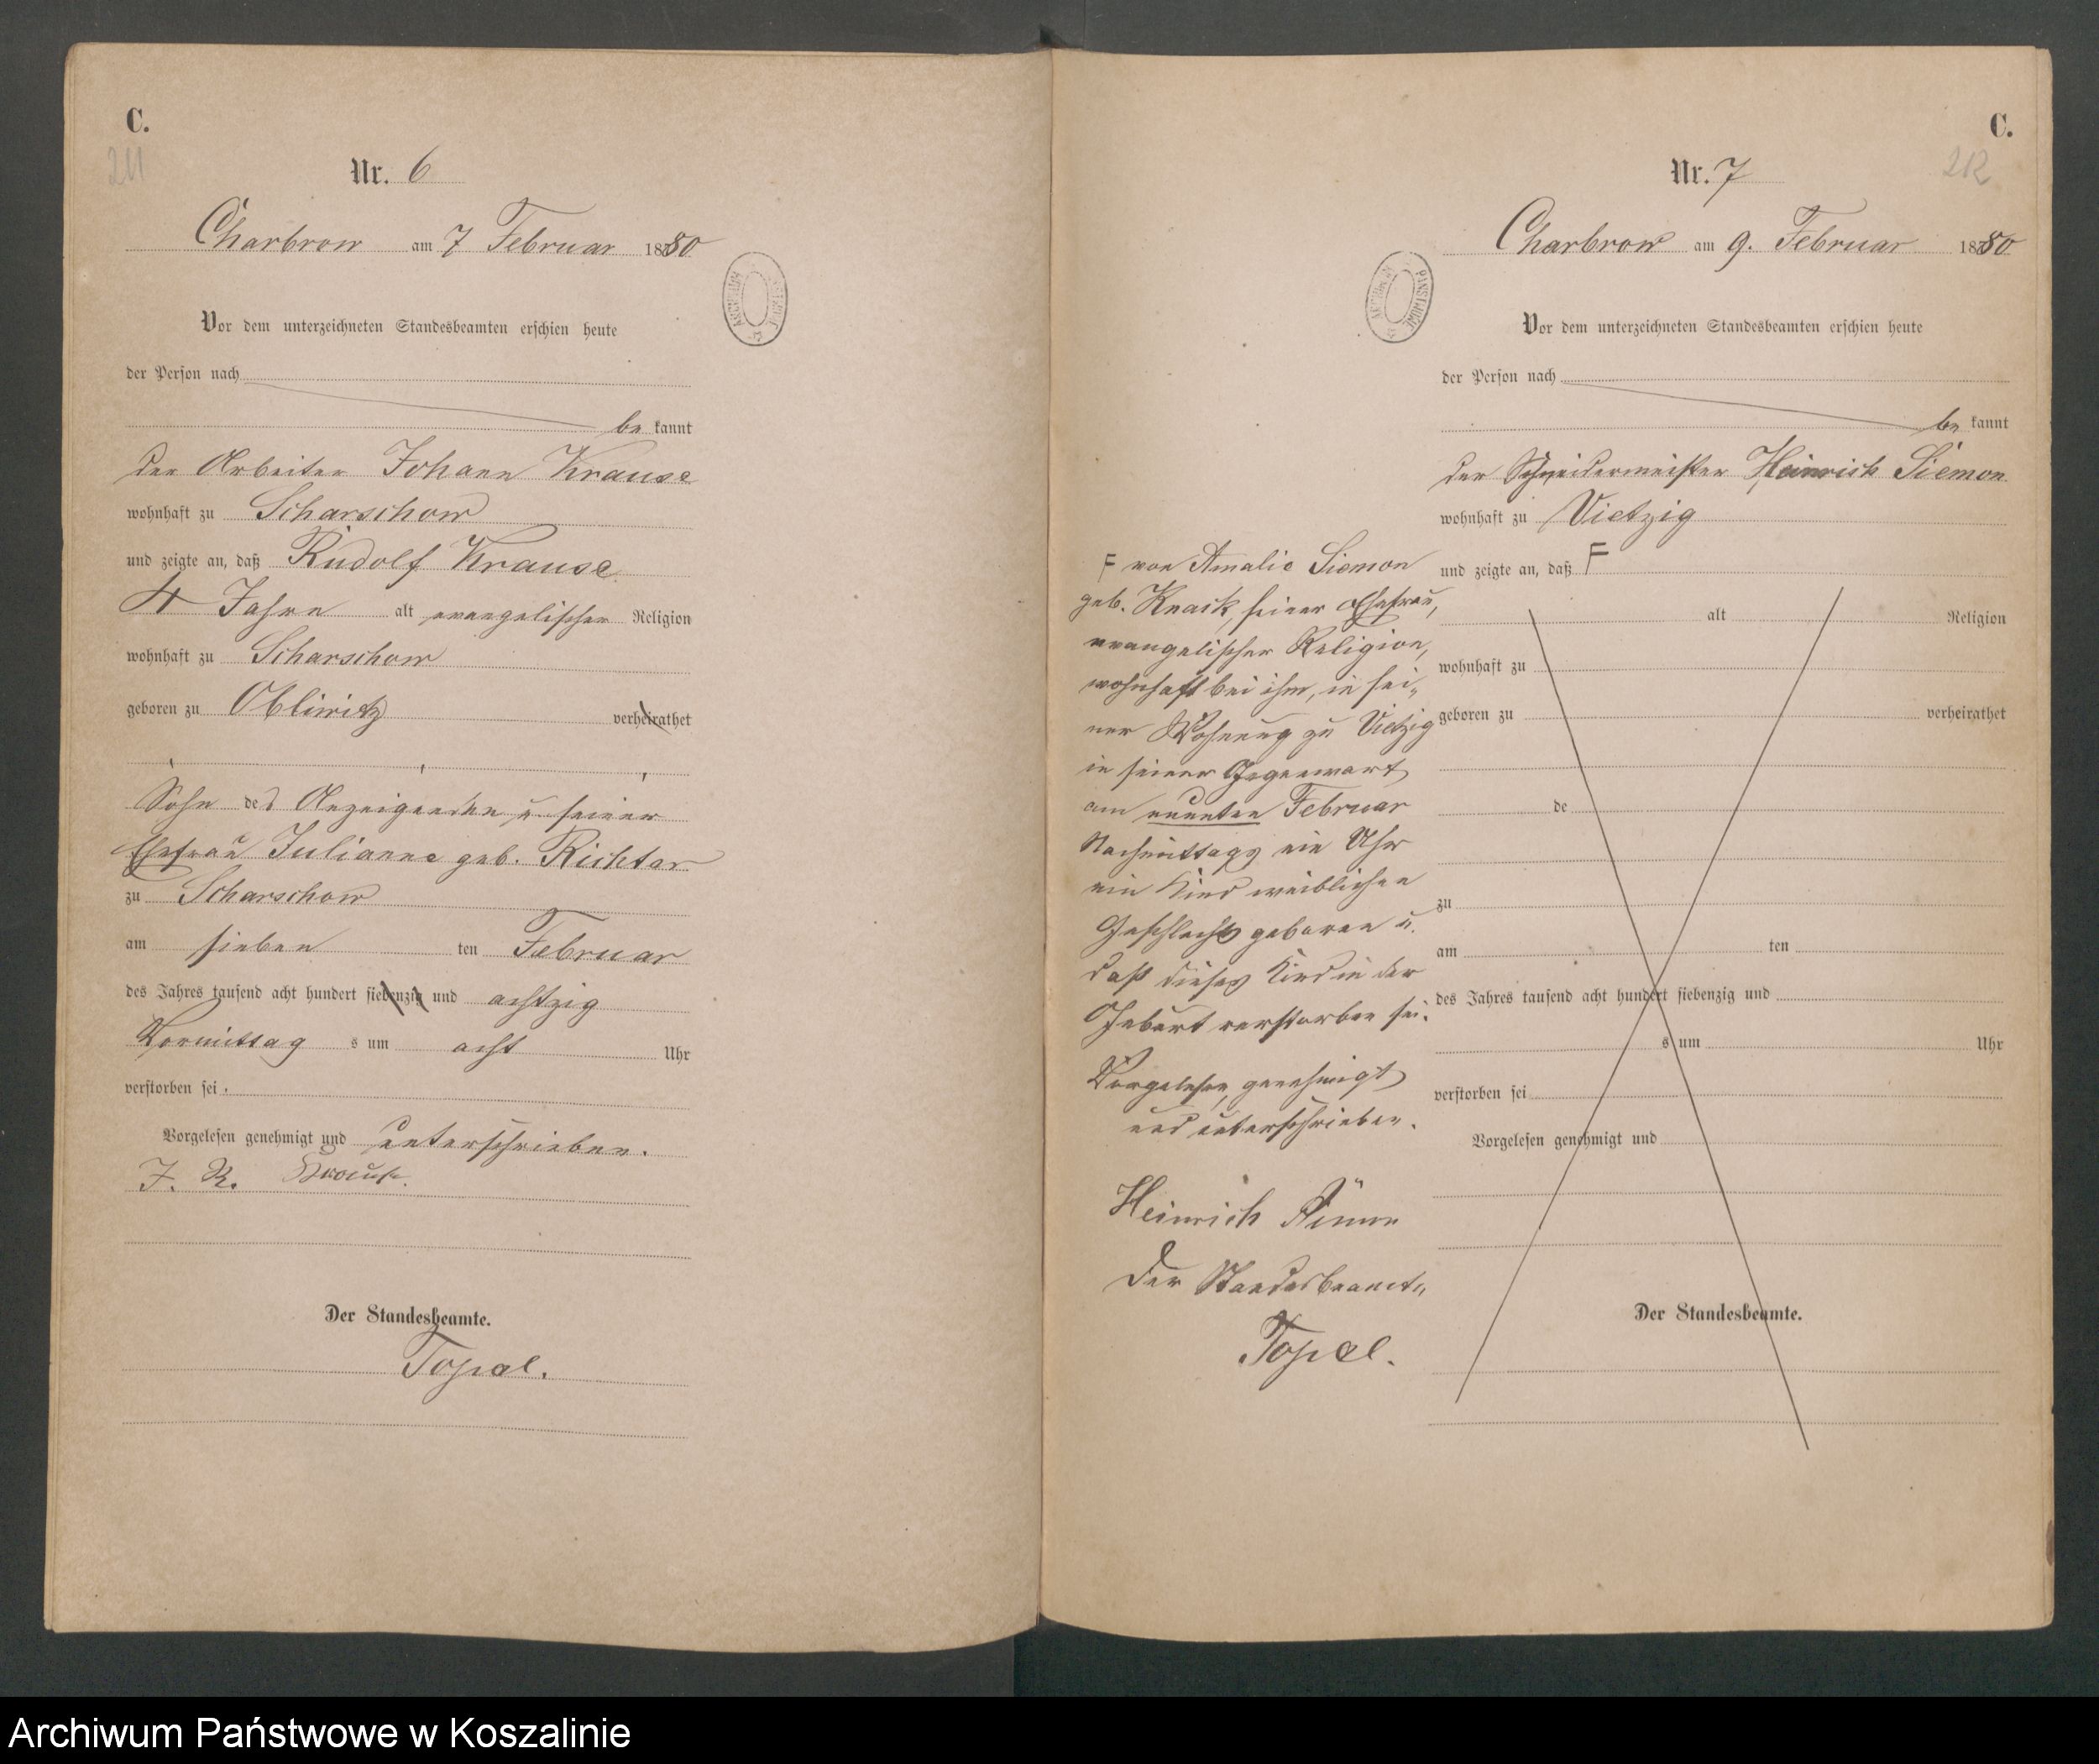 C.
211
Nr. 6
Charbrow am 7 Februar 1880
ARCHIWUM
Vor dem unterzeichneten Standesbeamten erschien heute
der Person nach
be kannt
der Arbeiter Johann Krause
wohnhaft zu Scharschow
und zeigte an, daß Rudolf Krause
4 Jahre alt evangelischer Religion
wohnhaft zu Scharschow
geboren zu Obliwitz verheirathet
Sohn des Anzeigenden u. seiner
Ehefrau Julianne geb. Richter
zu Scharschow
am sieben ten Februar
des Jahres tausend acht hundert siebenzig und achtzig
Vormittag s um acht Uhr
verstorben sei.
Vorgelesen genehmigt und unterschrieben.
J. R. Krause
Der Standesbeamte.
Topel.
C.
212
Nr. 7
Charbrow am 9. Februar 1880
ARCHIWUM PAŃSTWOWE
Vor dem unterzeichneten Standesbeamten erschien heute
der Person nach
be kannt
der Schneidermeister Heinrich Siemon
wohnhaft zu Vietzig
und zeigte an, daß F
alt Religion
wohnhaft zu
geboren zu verheirathet
de
zu
am ten
des Jahres tausend acht hundert siebenzig und
s um Uhr
verstorben sei
Vorgelesen genehmigt und
Der Standesbeamte.
F von Amalie Siemon
geb. Knack, seiner Ehefrau,
evangelischer Religion,
wohnhaft bei ihm, in sei„
ner Wohnung zu Vietzig
in seiner Gegenwart
am neunten Februar
Nachmittags ein Uhr
ein Kind weiblichen
Geschlechts geboren u.
daß dieses Kind in der
Geburt verstorben sei.
Vorgelesen, genehmigt
und unterschrieben.
Heinrich
Der Standesbeamte„
Topel.
Archiwum Państwowe w Koszalinie